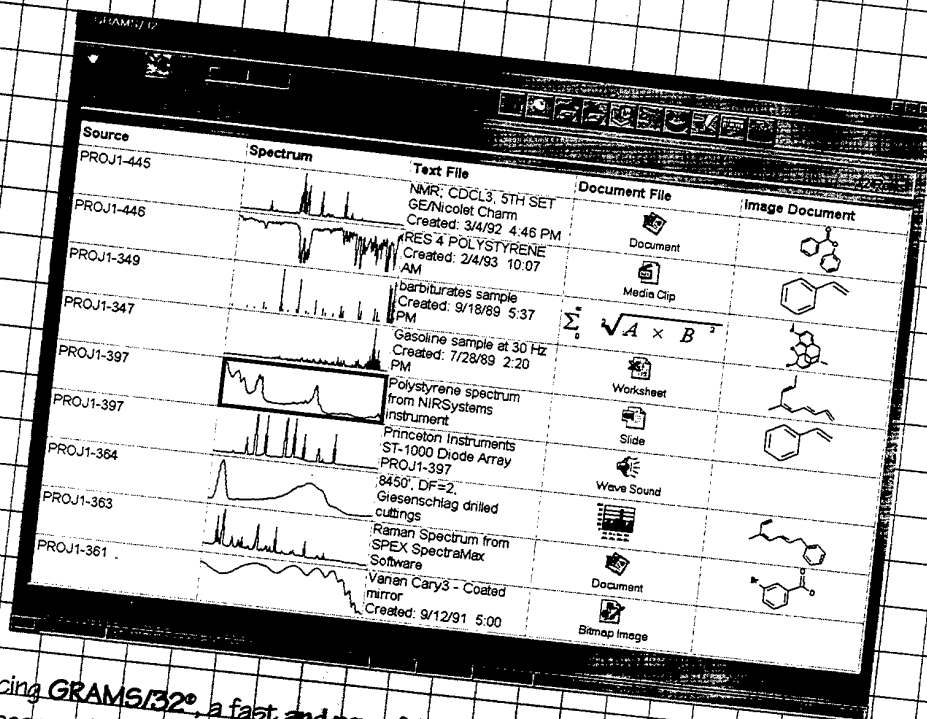 GRAMS/32
Source Spectrum Text File Document File Image Document
PROJ1-445
NMR: CDCL3, 5TH SET
GE/Nicolet Charm
Created: 3/4/92 4:46 PM
Document
PROJ1-446
RES 4 POLYSTYRENE
Created: 2/4/93 10:07
AM
Media Clip
PROJ1-349
barbiturates sample
Created: 9/18/89 5:37
PM
A × B
PROJ1-347
Gasoline sample at 30 Hz
Created: 7/28/89 2:20
PM
Worksheet
PROJ1-397
Polystyrene spectrum
from NIRSystems
instrument
Slide
PROJ1-397
Princeton Instruments
ST-1000 Diode Array
PROJ1-397
Wave Sound
PROJ1-364
8450', DF=2,
Giesenschlag drilled
cuttings
PROJ1-363
Raman Spectrum from
SPEX SpectraMax
Software
Document
PROJ1-361
Varian Cary3 - Coated
mirror
Created: 9/12/91 5:00
Bitmap Image
GRAMS/32®, a fast and